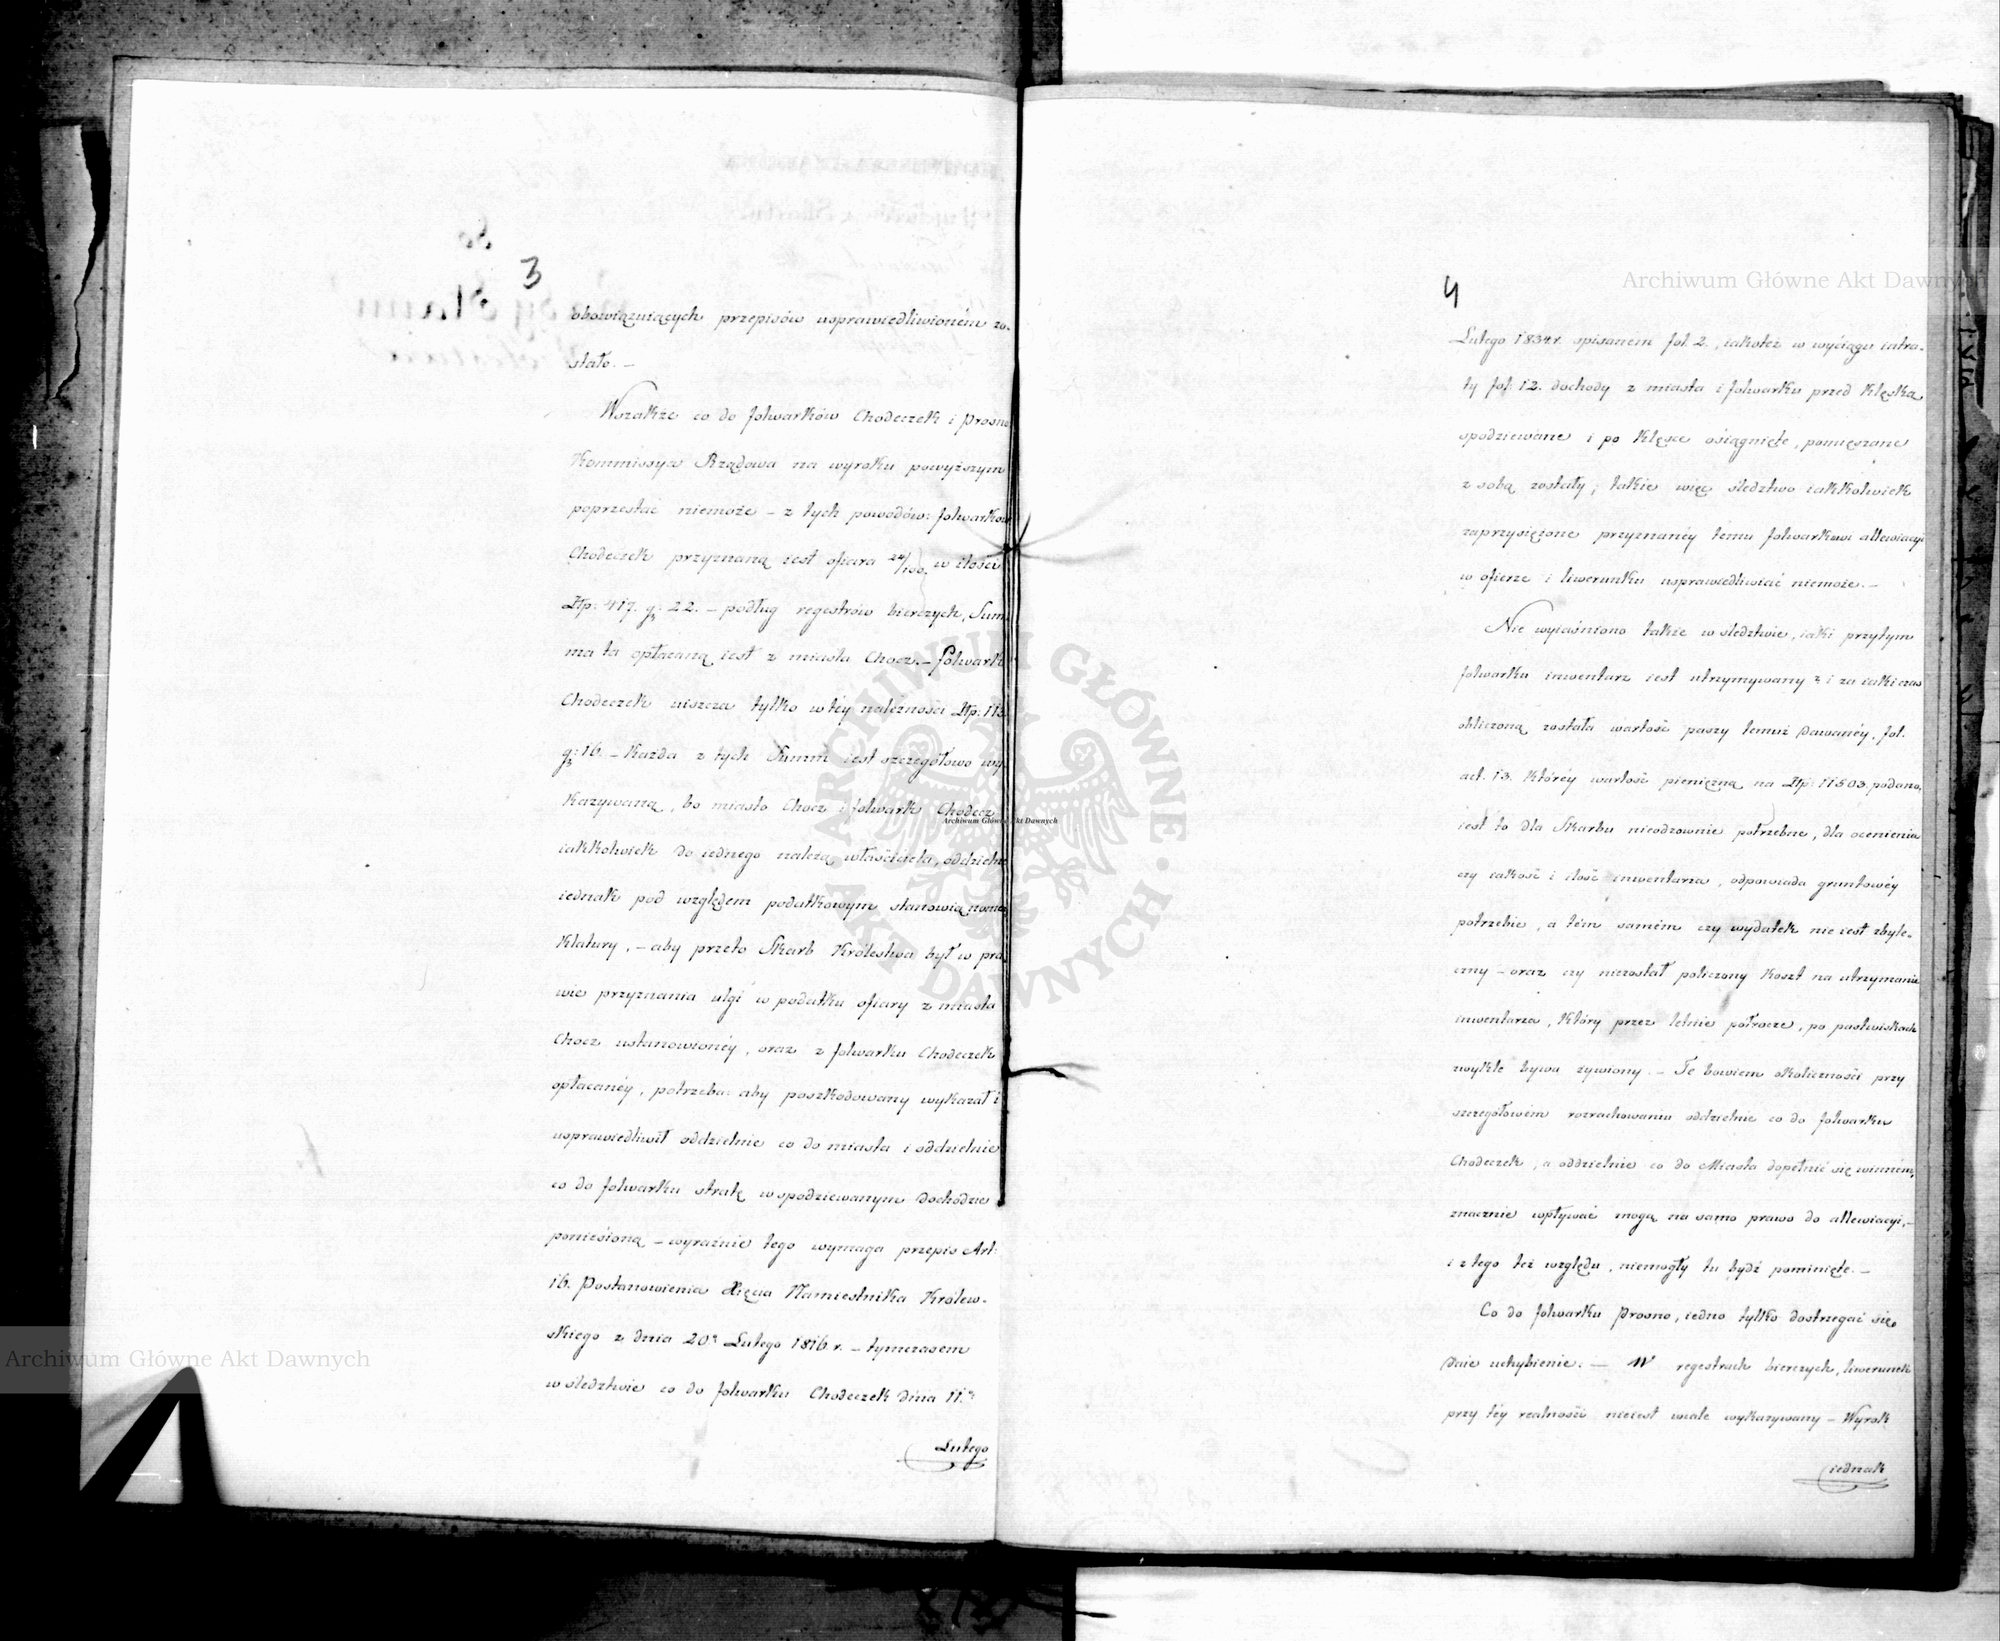 3
obowiązuiących przepisów usprawiedliwioném zo-
stało. —
Wszakże co do folwarków Chodeczek i Prosno
Kommissya Rządowa na wyroku powyższym
poprzestać niemoże — z tych powodów: folwarkow
Chodeczek przyznaną iest ofiara 24/100. w ilości
Złp: 417. gr: 22. — podług regestrów bierczych, Sum-
ma ta opłacaną iest z miasta Chocz. — folwark
Chodeczek uiszcza tylko w téy należności Złp: 113
gr: 16. — Każda z tych Summ iest szczegółowo wy-
kazywaną, bo miasto Chocz i folwark Chodecz
iakkolwiek do iednego należą właściciela, oddzielne
iednak pod względem podatkowym stanowią nomen
klatury, — aby przeto Skarb Królestwa był w pra-
wie przyznania ulgi w podatku ofiary z miasta
Chocz ustanowionéy, oraz z folwarku Chodeczek
opłacanéy, potrzeba: aby poszkodowany wykazał i
usprawiedliwił oddzielnie co do miasta i oddzielnie
co do folwarku stratę w spodziewanym dochodzie
poniesioną — wyraźnie tego wymaga przepis Art:
16. Postanowienia Xięcia Namiestnika Królew-
skiego z dnia 20o Lutego 1816. r. — tymczasem
w śledztwie co do folwarku Chodeczek dnia 11o
Lutego
4
Lutego 1834. r. spisanem fol. 2., iakoteż w wyciągu intra-
ty fol. 12. dochody z miasta i folwarku przed klęską
spodziewane i po klęsce osiągnięte, pomięszane
z sobą zostały; takie więc śledztwo iakkolwiek
zaprzysiężone przyznanéy temu folwarkowi allewiacyi
w ofierze i liwerunku usprawiedliwiać niemoże. —
Nie wyiaśniono także w śledztwie, iaki przytym
folwarku inwentarz iest utrzymywany? i za iaki czas
obliczoną została wartość paszy temuż dawanéy, fol.
act. 13. któréy wartość pieniężną na Złp: 11503. podano,
iest to dla Skarbu nieodzownie potrzebne, dla ocenienia
czy iakość i ilość inwentarza, odpowiada gruntowéy
potrzebie, a tém samém czy wydatek nie iest zbyte-
czny — oraz czy niezostał policzony koszt na utrzymanie
inwentarza, który przez letnie półrocze, po pastwiskach
zwykle bywa żywiony. — Te bowiem okoliczności przy
szczegółowém rozrachowaniu oddzielnie co do folwarku
Chodeczek, a oddzielnie co do Miasta dopełnić się winném,
znacznie wpływać mogą na samo prawo do allewiacyi, —
i z tego też względu, niemogły tu bydź pominięte. —
Co do folwarku Prosno, iedno tylko dostrzegać się
daie uchybienie: — W regestrach bierczych, liwerunek
przy téy realności nieiest wcale wykazywany — Wyrok
iednak
Archiwum Główne Akt Dawnych
Archiwum Główne Akt Dawnych
Archiwum Główne Akt Dawnych
ARCHIWUM GŁÓWNE · AKT DAWNYCH ·